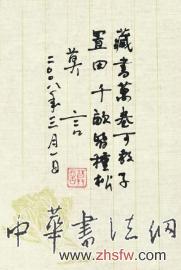 藏書萬卷可教子
置田千畝皆種松
莫言
二〇〇八年三月一日
中華書法網
www.zhsfw.com